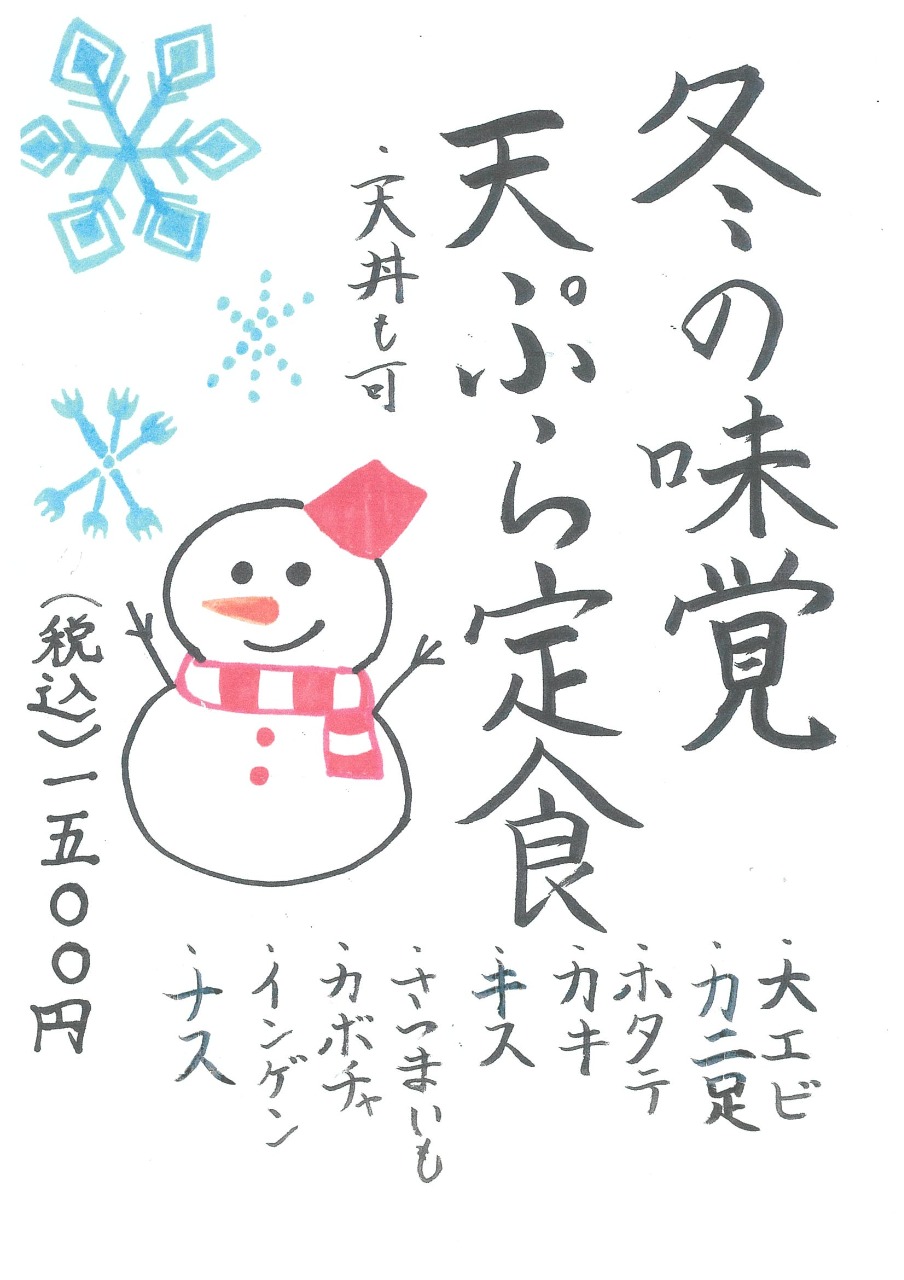 冬の味覚
天ぷら定食
・天丼も可
・大エビ
・カニ足
・ホタテ
・カキ
・キス
・さつまいも
・カボチャ
・インゲン
・ナス
（税込）一五〇〇円